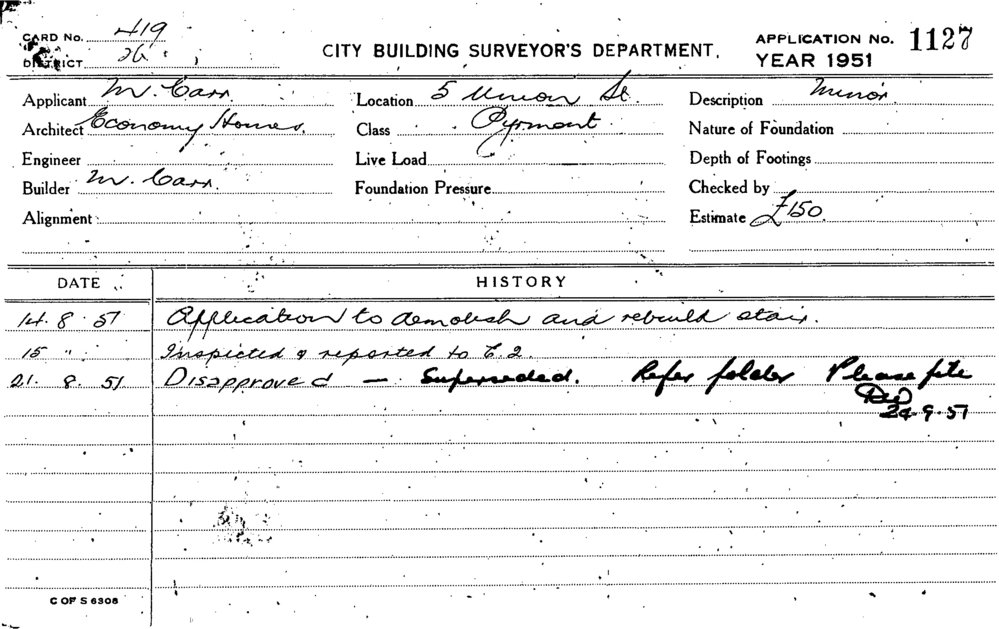 CARD No. 419
DISTRICT 26
CITY BUILDING SURVEYOR'S DEPARTMENT.
APPLICATION No. 1127
YEAR 1951
Applicant M. Carr Location 5 Union St. Description Minor
Architect Economy Homes. Class Pyrmont Nature of Foundation
Engineer Live Load Depth of Footings
Builder M. Carr. Foundation Pressure Checked by
Alignment Estimate £150.
DATE HISTORY
14.8.51 Application to demolish and rebuild stair.
15 " Inspected & reported to C.2.
21.8.51 Disapproved — Superseded. Refer folder Please file
24.9.51
C OF S 6308